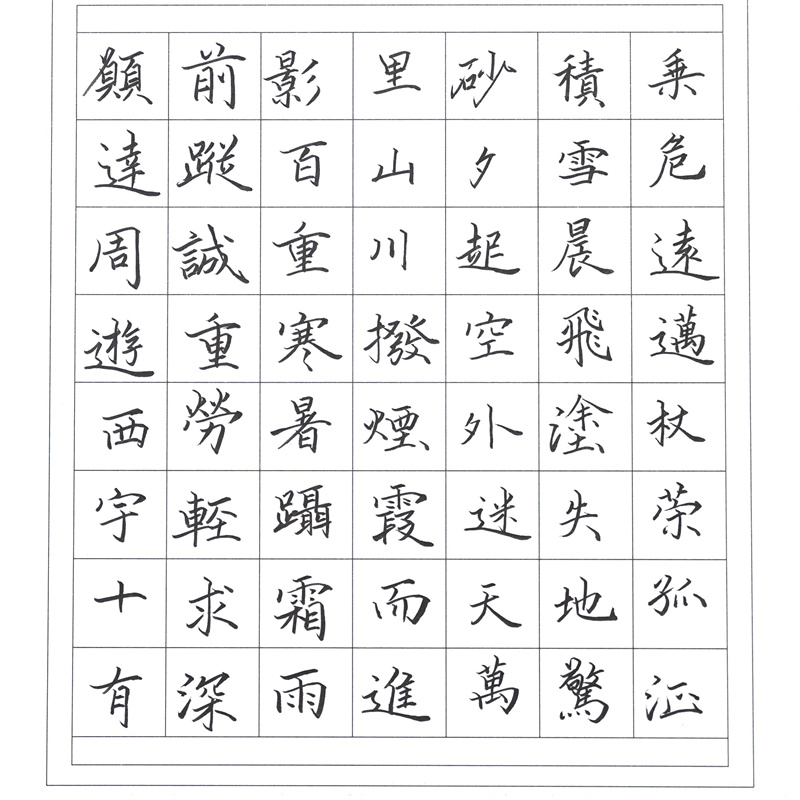 乘危遠邁杖策孤征
積雪晨飛塗失地驚
砂夕起空外迷天萬
里山川撥煙霞而進
影百重寒暑躡霜雨
前蹤誠重勞輕求深
願達周遊西宇十有